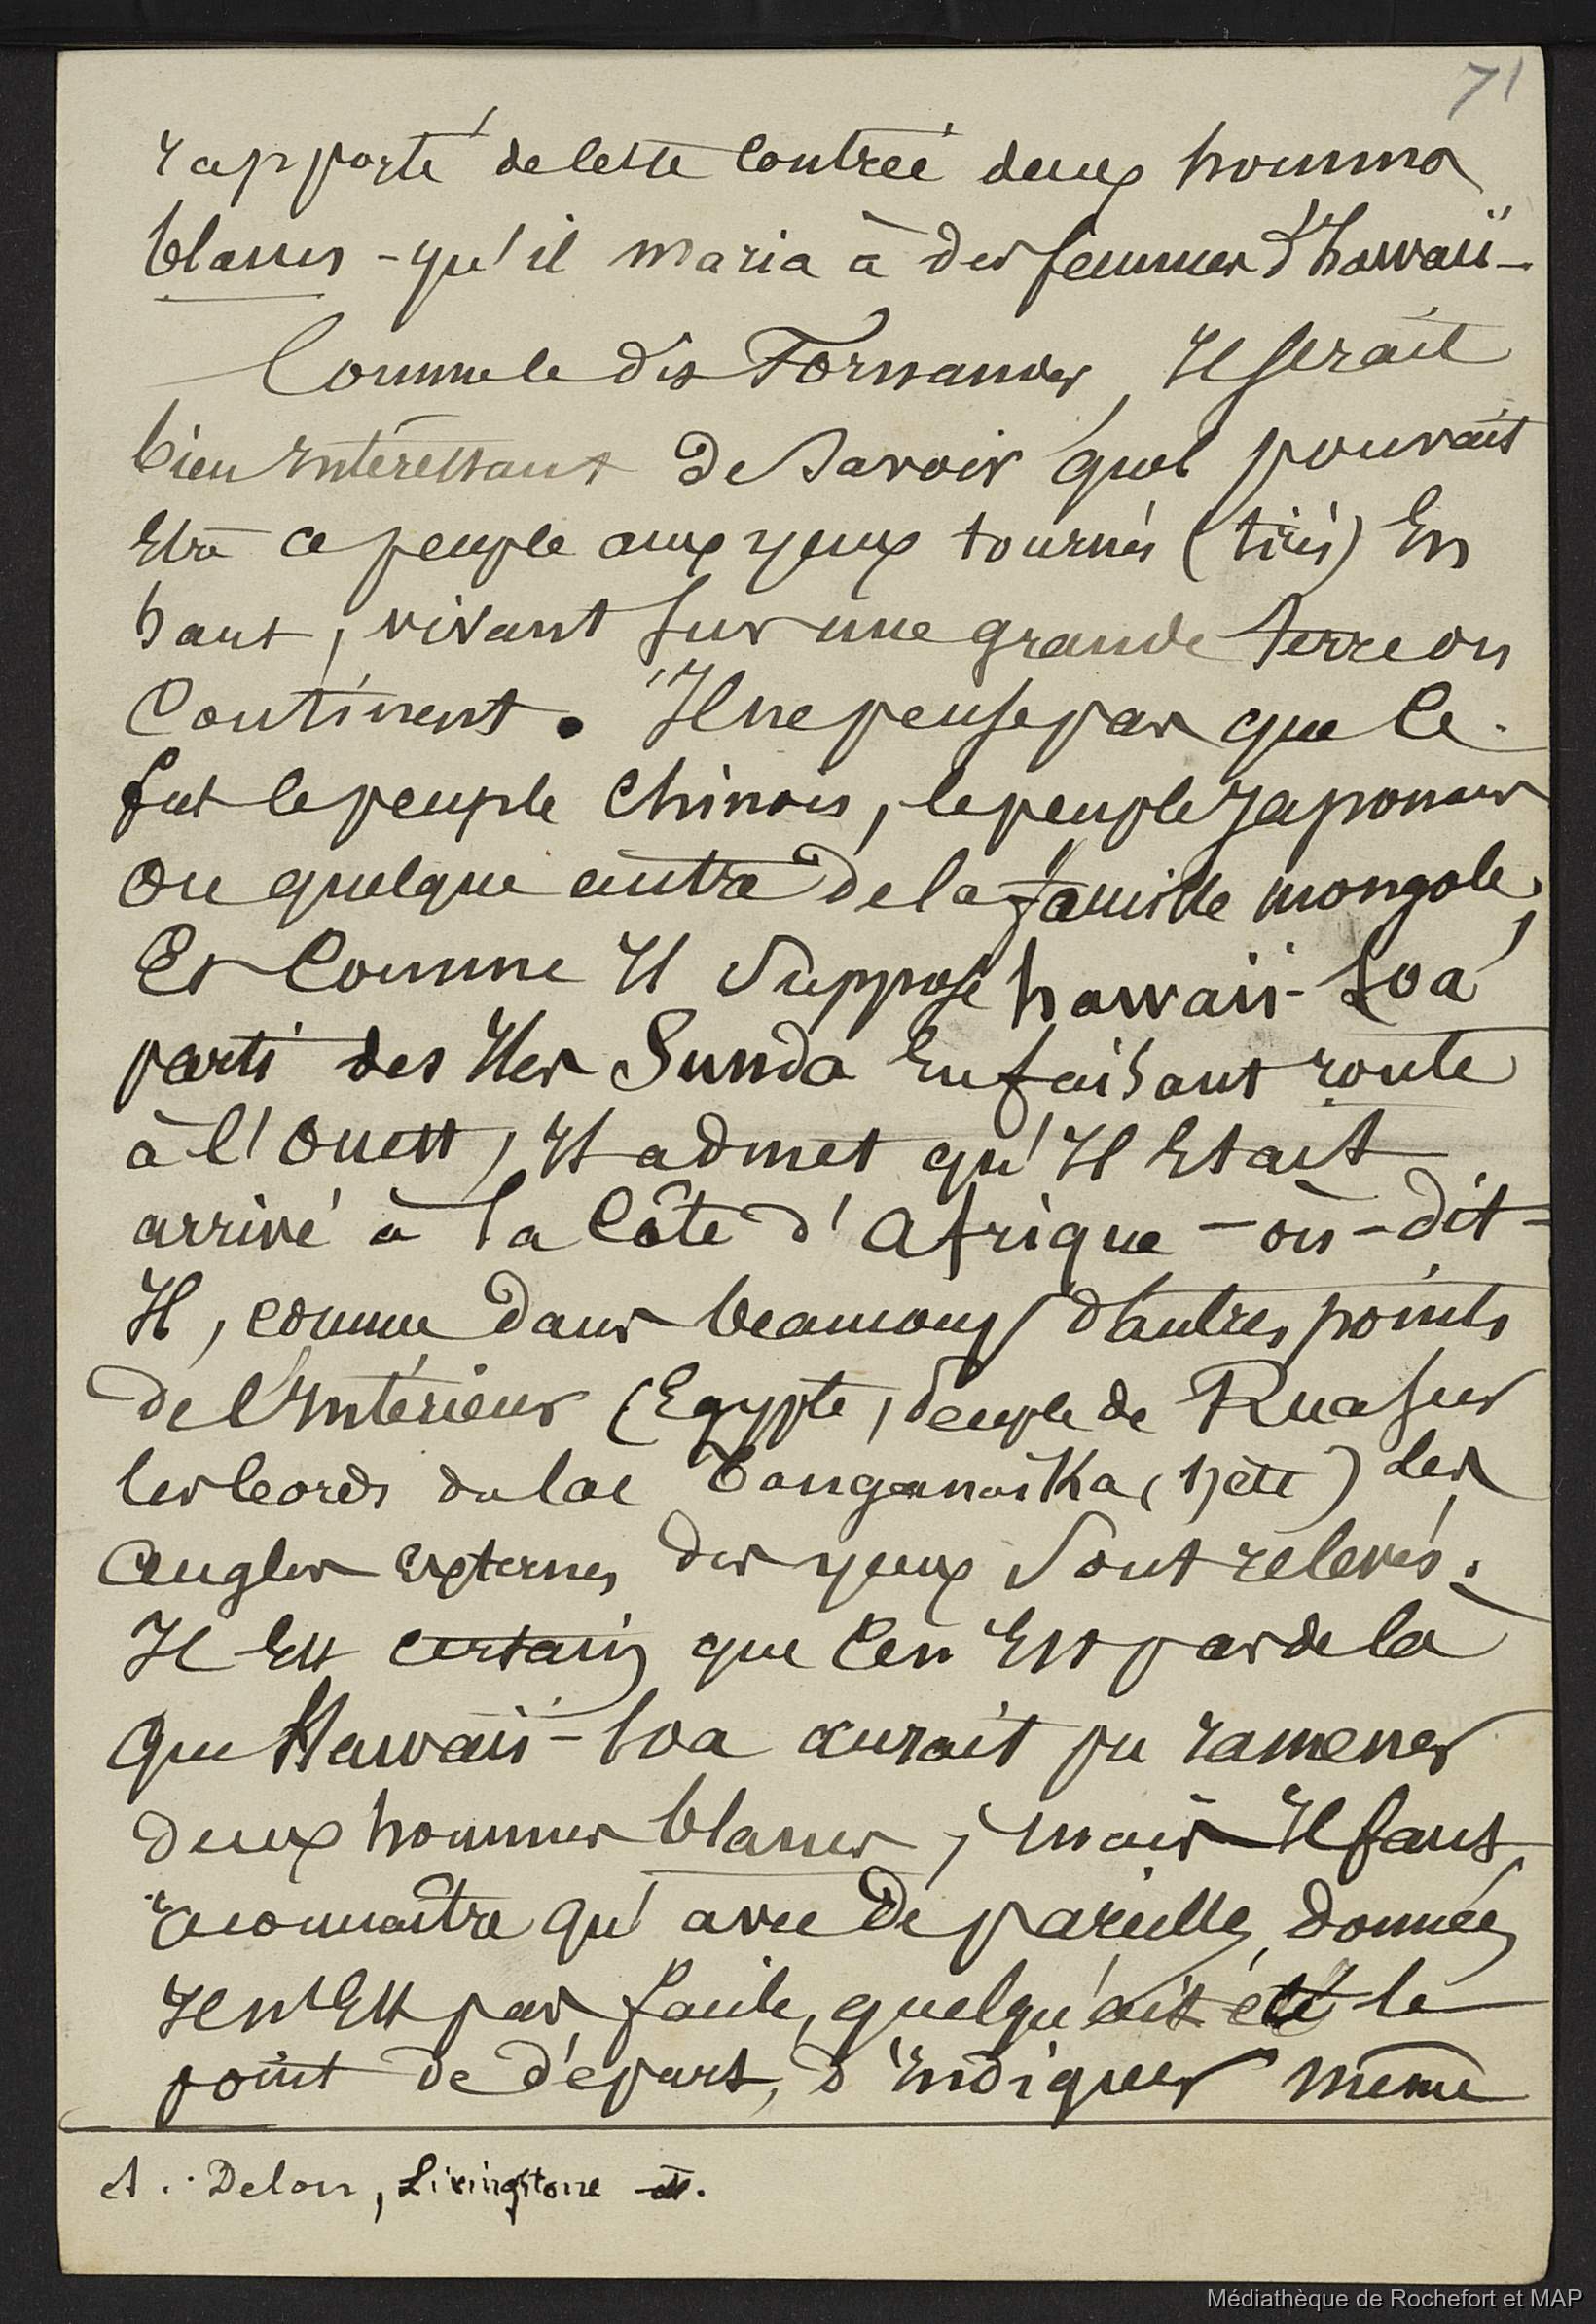 71
rapporté de cette contrée deux hommes
blancs - qu'il maria à des femmes d'hawaii -
Comme le dit Fornander, Il serait
bien Intéressant de Savoir quel pouvait
Etre ce peuple aux yeux tournés (tirés) En
haut, vivant sur une grande terre ou
Continent. Il ne pense pas que ce
fut le peuple Chinois, le peuple Japonais
ou quelque autre de la famille mongole,
Et Comme Il Suppose hawaii-loa
parti des Iles Sunda En faisant route
à l'Ouest, Il admet qu'Il Etait
arrivé à la Côte d'Afrique - où - dit -
Il, comme dans beaucoup d'autres points
de l'Intérieur (Egypte, peuple de Rua sur
les bords du lac Tanganaïka,) les
angles externes des yeux Sont relevés.
Il Est certain que C'en Est pas de là
que Hawaii-loa aurait pu ramener
deux hommes blancs ; mais Il faut
reconnaître qu'avec de pareilles données
Il n'Est pas facile, quelqu'ait été le
point de départ, d'Indiquer même
Delon, Livingstone